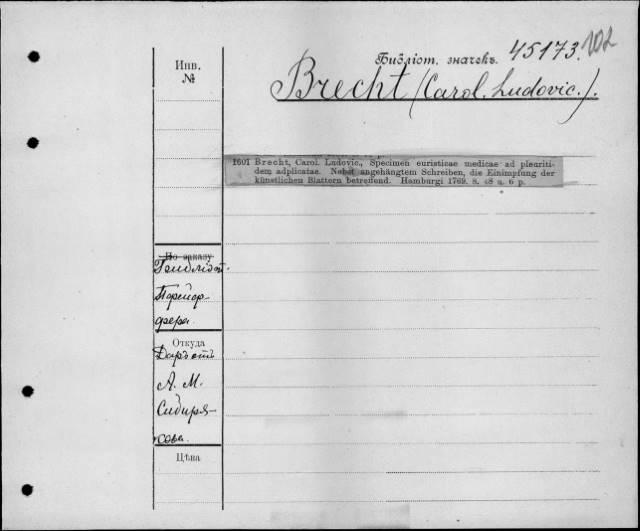 Инв.
№
Библіот. значекъ. 45173. 102
Brecht (Carol. Ludovic.).
1601 Brecht, Carol. Ludovic., Specimen euristicae medicae ad pleuriti-
dem adplicatae. Nebst angehängtem Schreiben, die Einimpfung der
künstlichen Blattern betreffend. Hamburgi 1769. 8. 48 u. 6 p.
По заказу
Библіот.
Порейор-
фера
Откуда
Даръ отъ
А. М.
Сибиря-
кова.
Цѣна